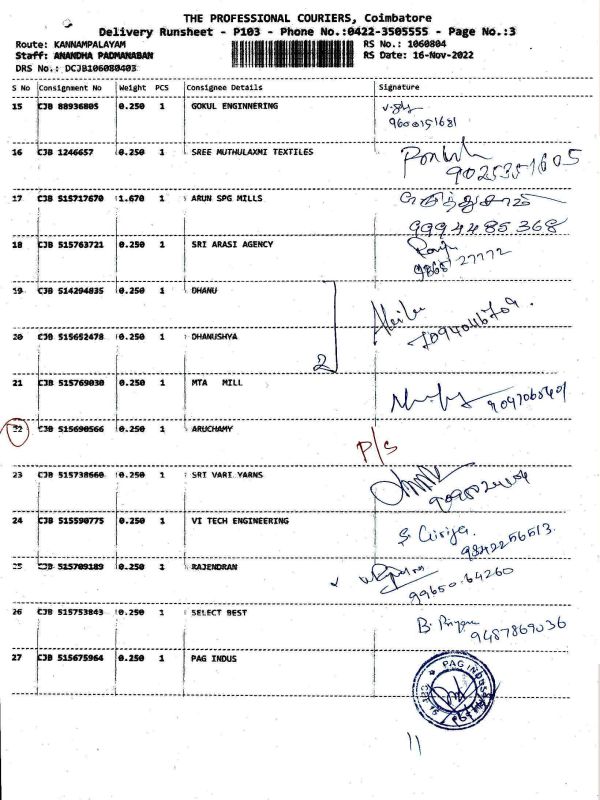 THE PROFESSIONAL COURIERS, Coimbatore
Delivery Runsheet - P103 - Phone No.:0422-3505555 - Page No.:3
Route: KANNAMPALAYAM RS No.: 1060804
Staff: ANANDHA PADMANABAN RS Date: 16-Nov-2022
DRS No.: DCJB106080403
S No Consignment No Weight PCS Consignee Details Signature
15 CJB 88936805 0.250 1 GOKUL ENGINNERING
9600151681
16 CJB 1246657 0.250 1 SREE MUTHULAXMI TEXTILES
9025351605
17 CJB 515717670 1.670 1 ARUN SPG MILLS
9994485368
18 CJB 515763721 0.250 1 SRI ARASI AGENCY
9865727772
19 CJB 514294835 0.250 1 DHANU
20 CJB 515652478 0.250 1 DHANUSHYA
7094046709.
2
21 CJB 515769030 0.250 1 MTA MILL
CJB 515690566 0.250 1 ARUCHAMY
P/S
23 CJB 515738660 0.250 1 SRI VARI YARNS
24 CJB 515590775 0.250 1 VI TECH ENGINEERING
9842256513.
25 CJB 515709189 0.250 1 RAJENDRAN
99650.64260
26 CJB 515753843 0.250 1 SELECT BEST
9487869036
27 CJB 515675964 0.250 1 PAG INDUS
PAG INDUS
11